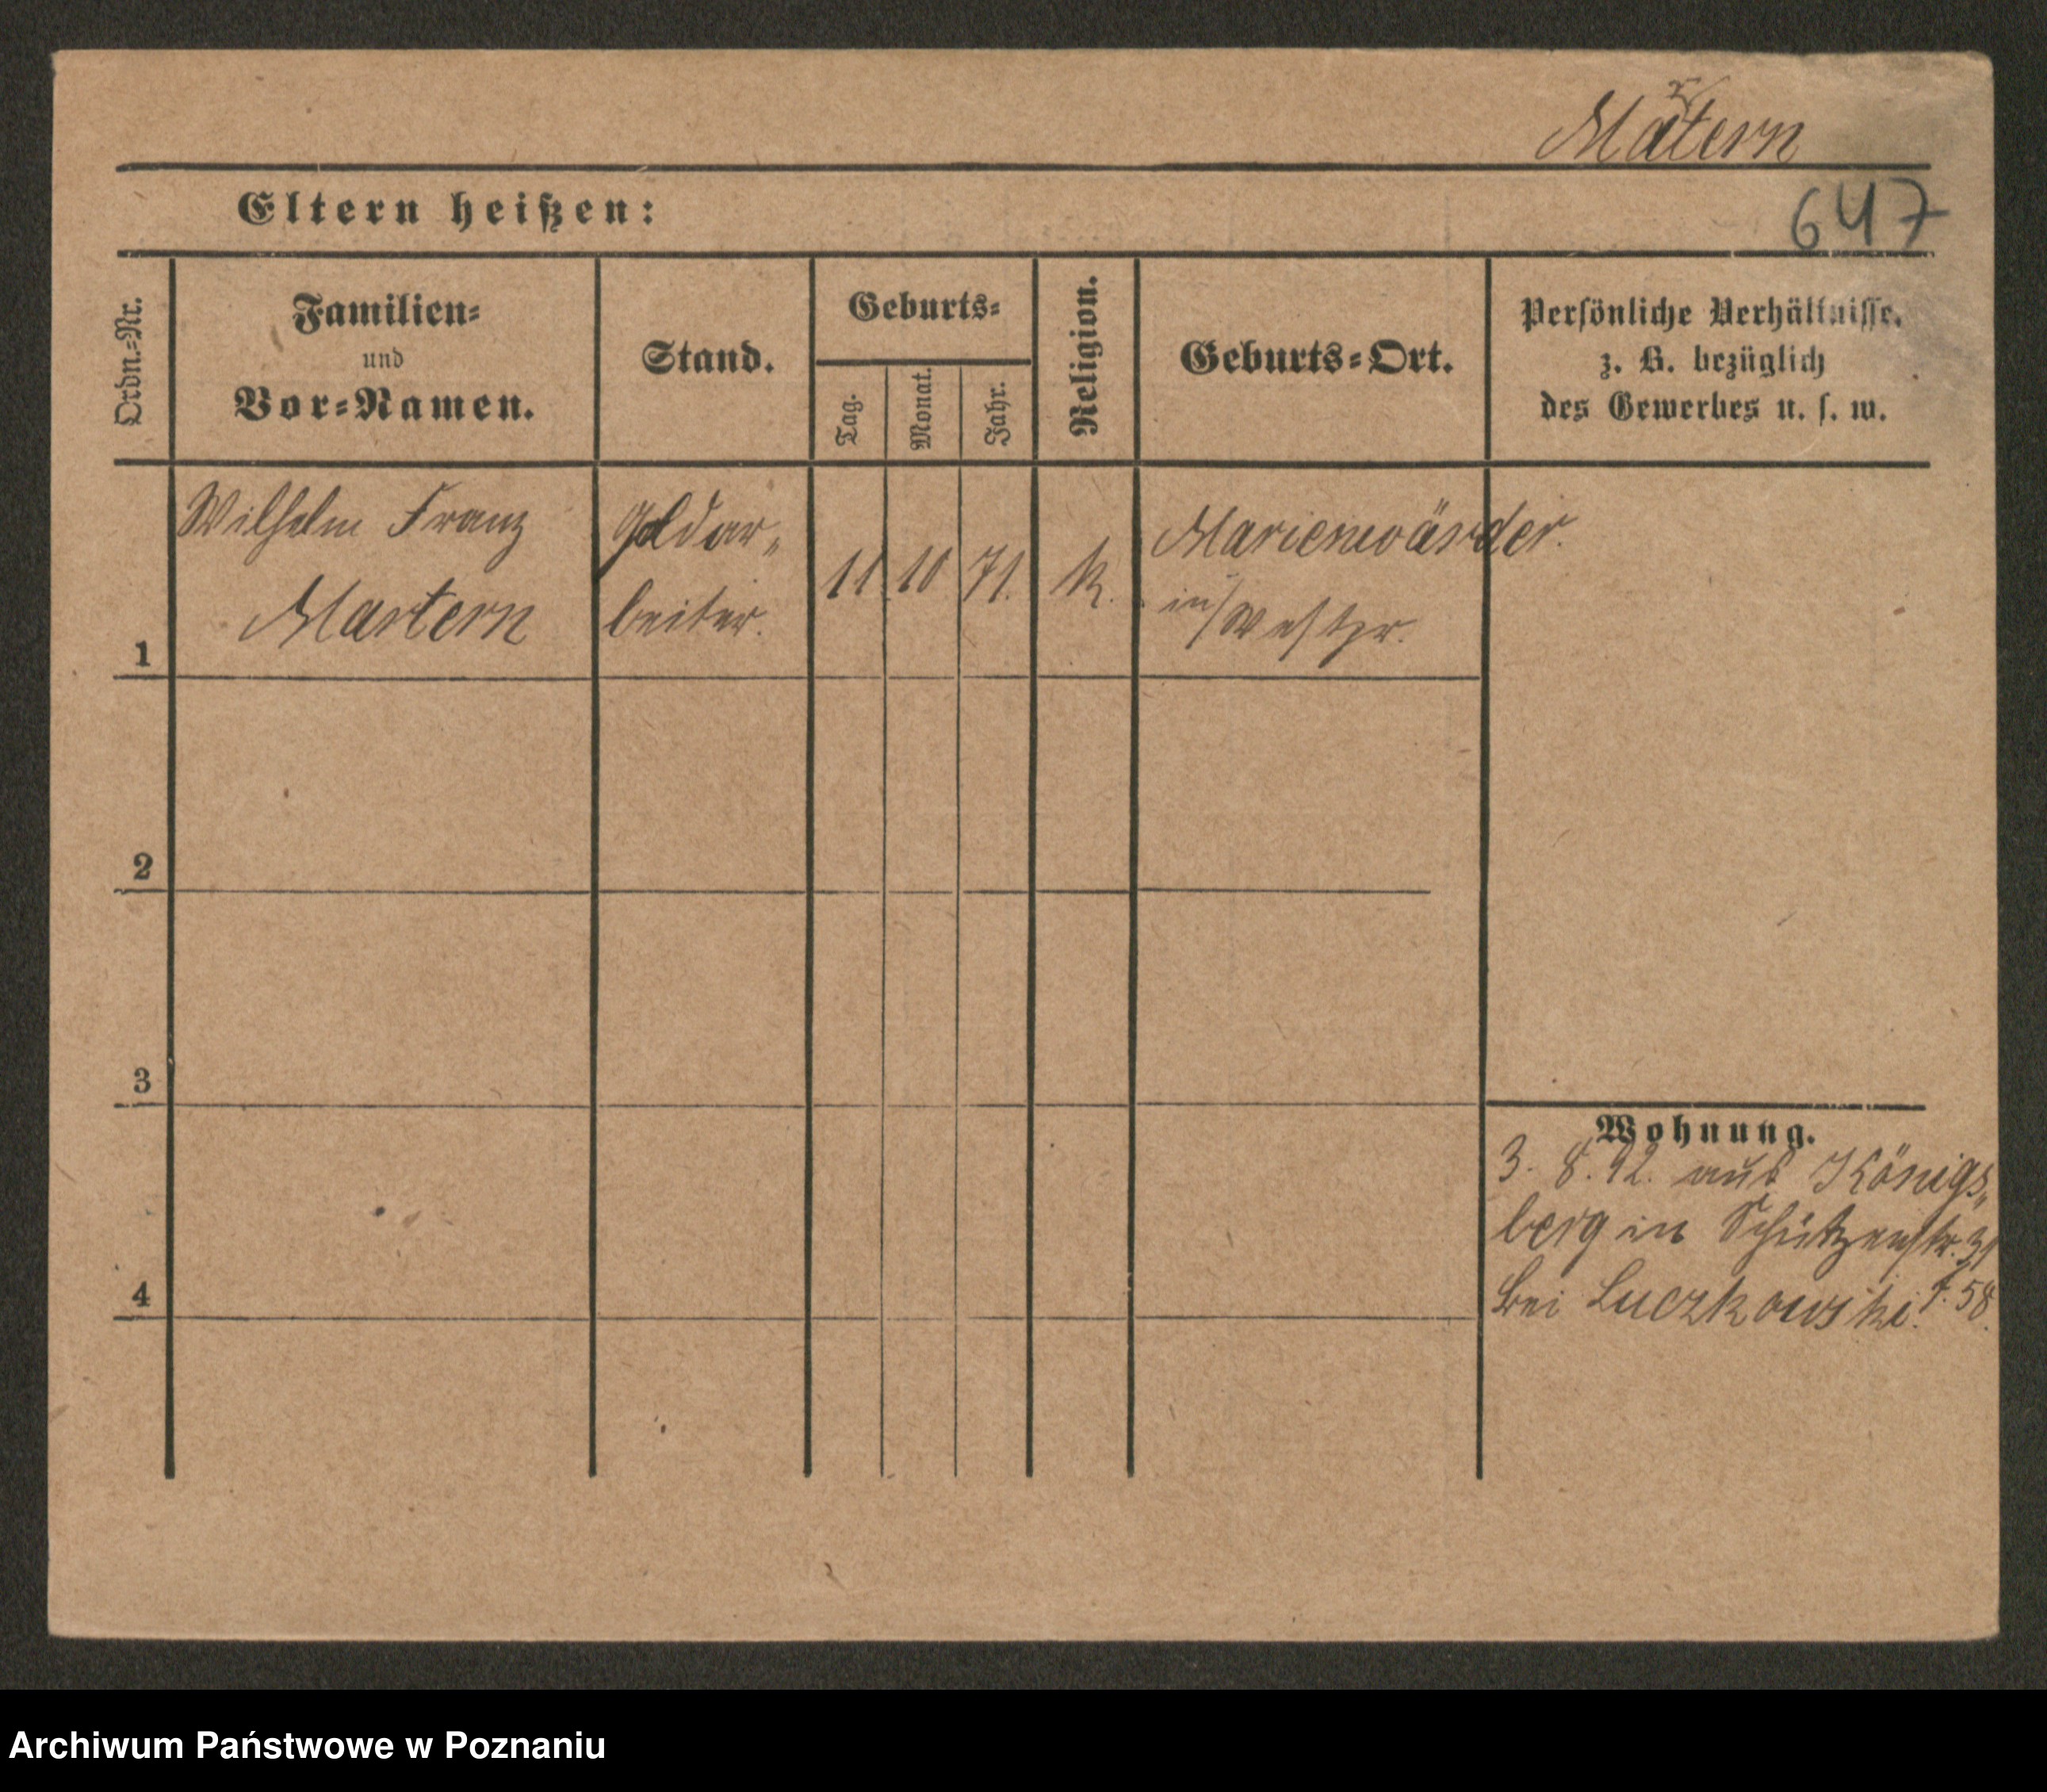 Matern
Eltern heißen:
647
Ordn.=Nr.
Familien=
und
Vor=Namen.
Stand.
Geburts=
Tag.
Monat.
Jahr.
Religion.
Geburts=Ort.
Persönliche Verhältnisse,
z. B. bezüglich
des Gewerbes u. s. w.
Wilhelm Franz
Martern
Goldar„
beiter.
11. 10. 71.
k.
Marienwärder.
in/Westpr.
1
2
3
4
Wohnung.
3. 8. 92. aus Königs„
berg in Schützenstr. 31
bei Luczkowski. f. 58.
Archiwum Państwowe w Poznaniu